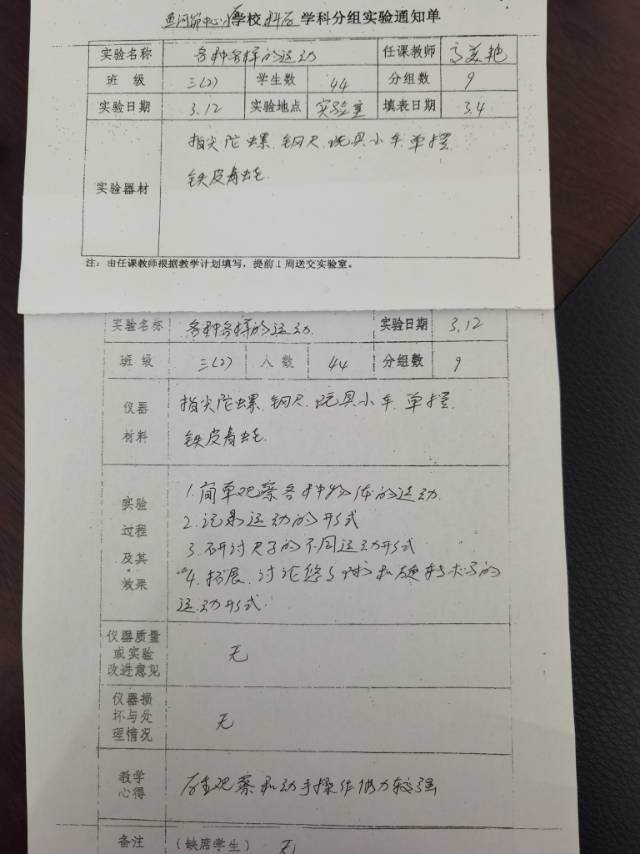 中心小学校 科学 学科分组实验通知单
实验名称 各种各样的运动 任课教师
班级 三(2) 学生数 44 分组数 9
实验日期 3.12 实验地点 实验室 填表日期 3.4
实验器材 指尖陀螺.钢尺.玩具小车.单摆.
铁皮青蛙.
注：由任课教师根据教学计划填写，提前1周送交实验室。
实验名称 各种各样的运动. 实验日期 3.12
班级 三(2) 人数 44 分组数 9
仪器材料 指尖陀螺.钢尺.玩具小车.单摆.
铁皮青蛙.
实验过程及其效果 1.简单观察各种物体的运动.
2.记录运动的形式
3.研讨尺子的不同运动形式
4.拓展.讨论 的
运动形式.
仪器质量或实验改进意见 无
仪器损坏与处理情况 无
教学心得 观察和动手操作能力较强
备注 (缺席学生) 无